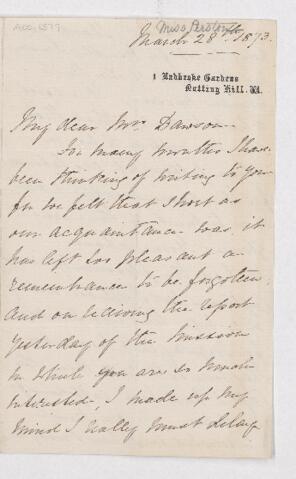 Miss
March 28th 1873.
1 Ladbroke Gardens
Notting Hill. W.
My dear Mrs Dawson
For many months I have
been thinking of writing to you
for we felt that short as
our acquaintance was, it
has left so pleasant a
remembrance to be forgotten.
And on receiving the report
yesterday of the Mission
in which you are so much
interested, I made up my
mind I really must delay